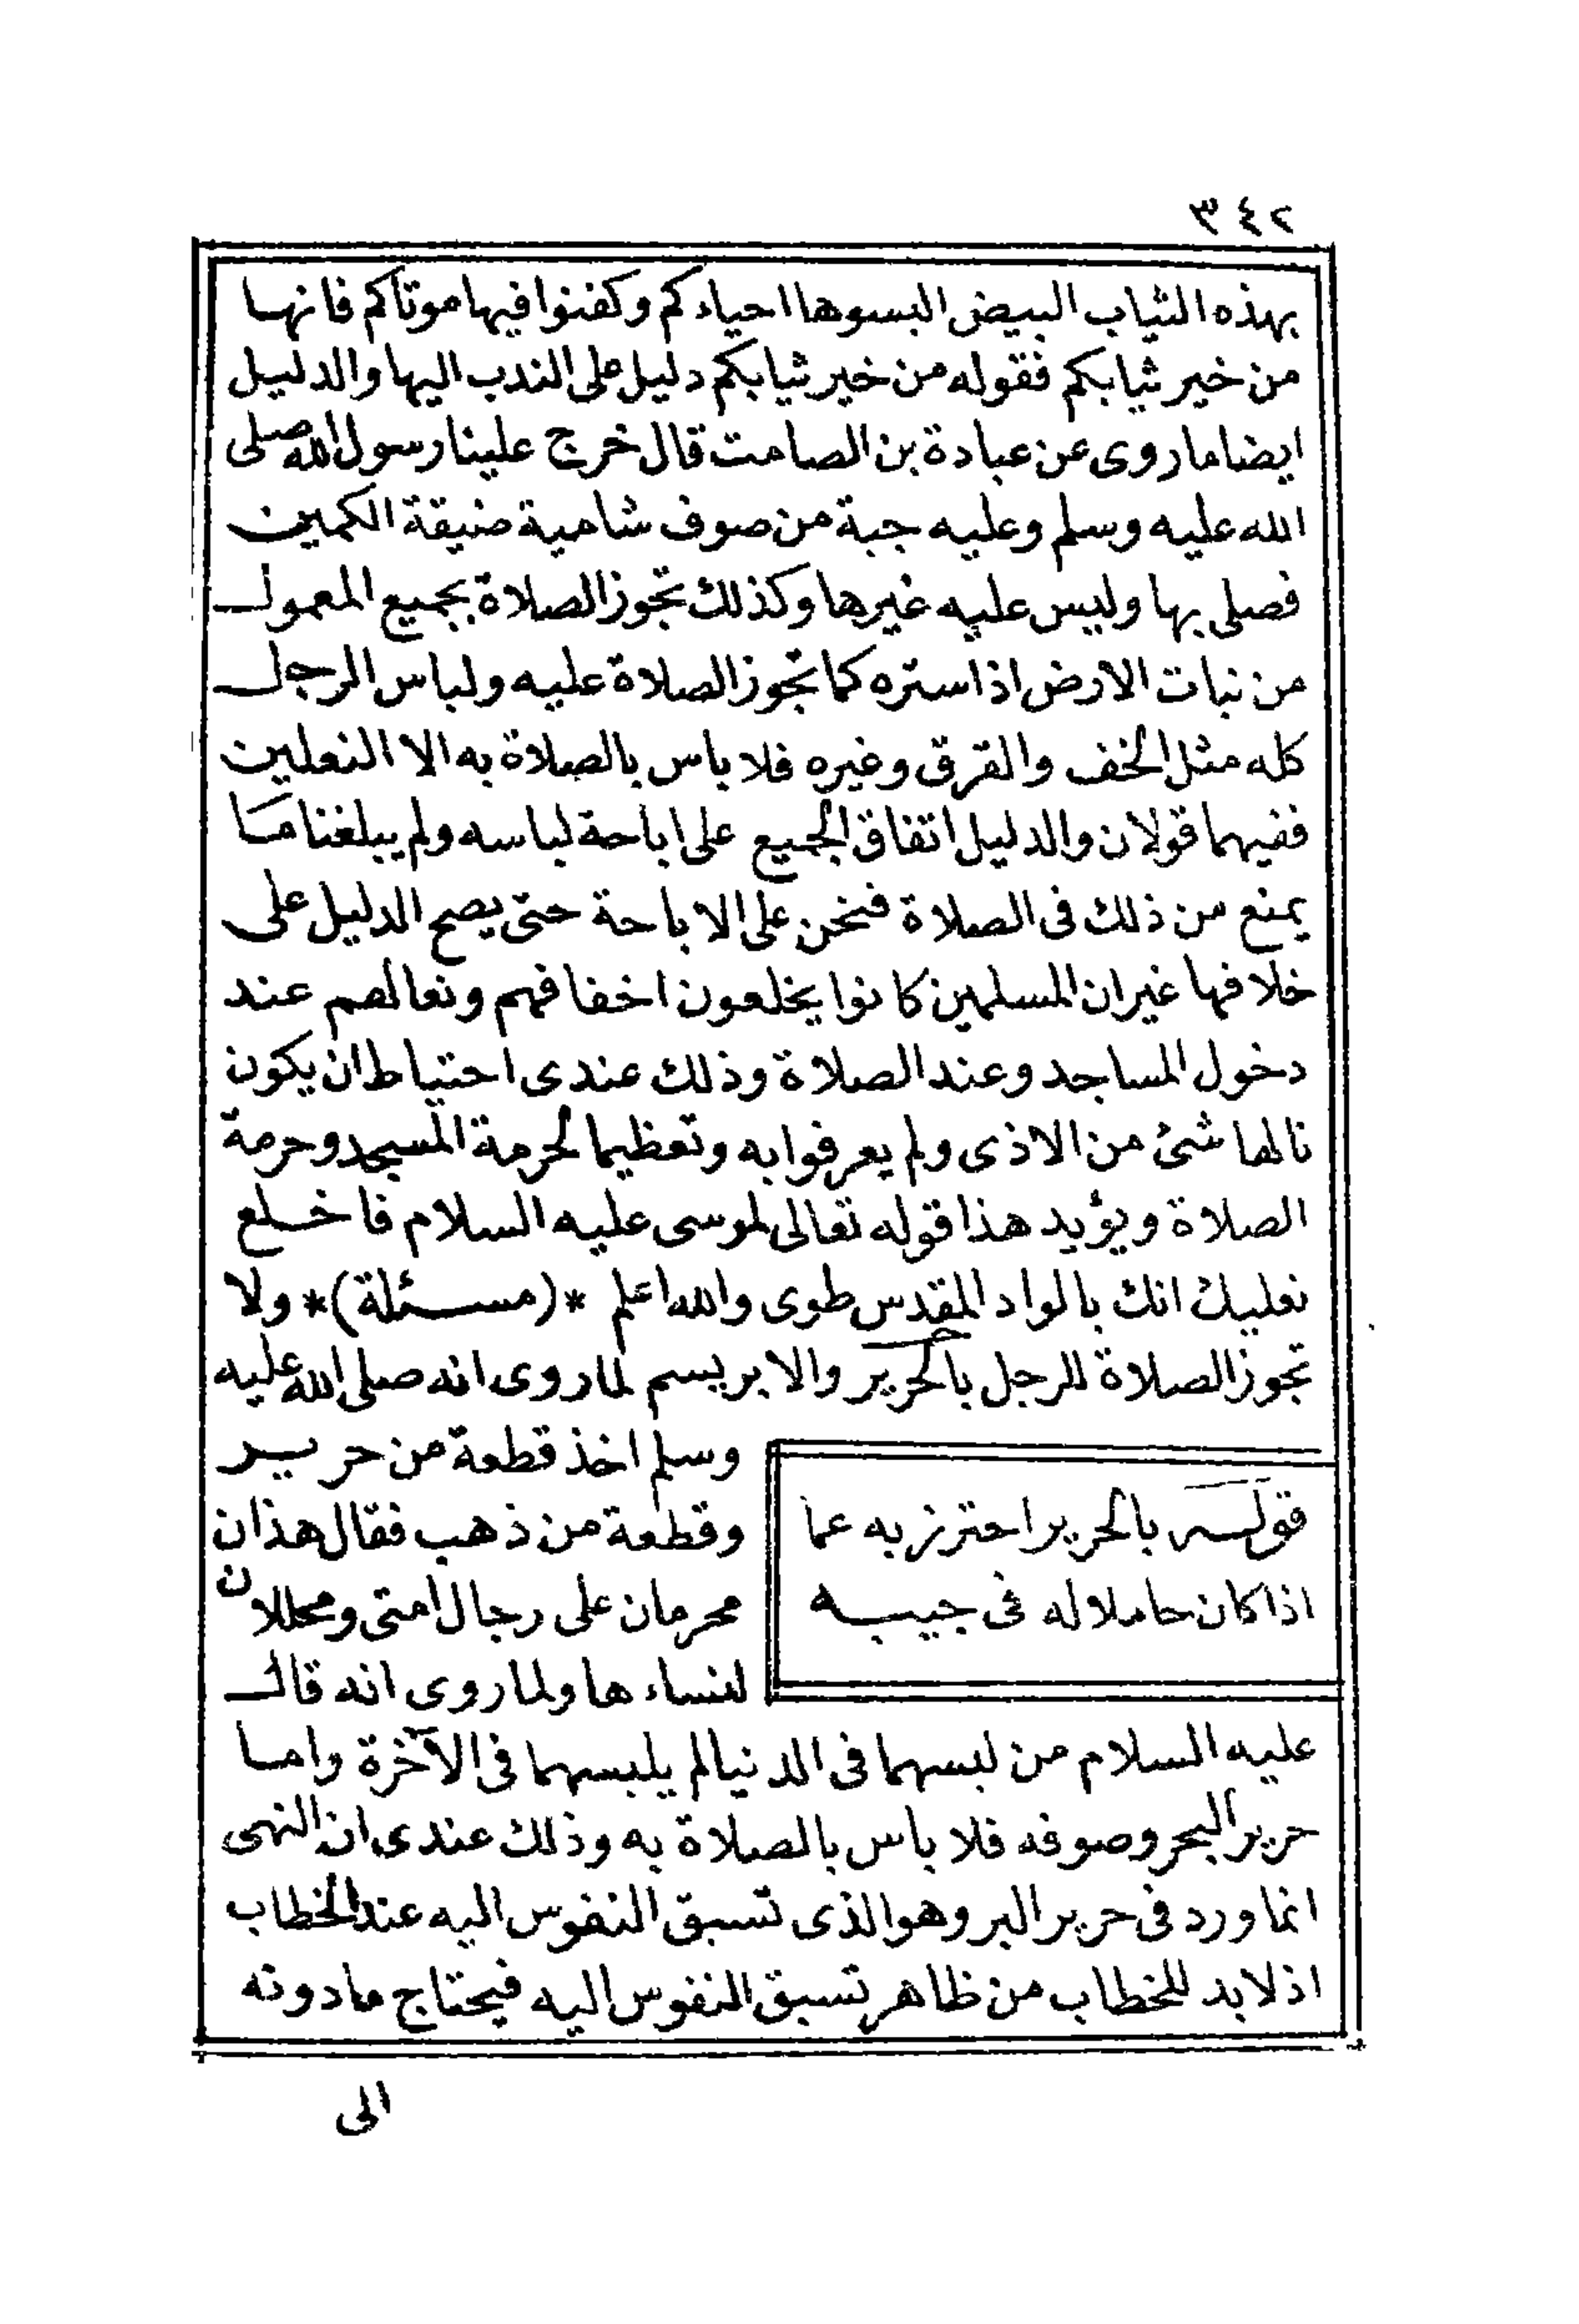 ٣٤٢
بهذه الثياب البيض البسوها احياءكم وكفنوا فيها موتاكم فانها
من خير ثيابكم فقوله من خير ثيابكم دليل على الندب اليها والدليل
ايضا ما روى عن عبادة بن الصامت قال خرج علينا رسول الله صلى
الله عليه وسلم وعليه جبة من صوف شامية ضيقة الكمين
فصلى بها وليس عليه غيرها وكذلك تجوز الصلاة بجميع المعمول
من نبات الارض اذا ستره كما تجوز الصلاة عليه ولباس الرجل
كله مثل الخف والقرق وغيره فلا باس بالصلاة به الا النعلين
ففيهما قولان والدليل اتفاق الجميع على اباحة لباسه ولم يبلغنا ما
يمنع من ذلك فى الصلاة فنحن على الاباحة حتى يصح الدليل على
خلافها غير ان المسلمين كانوا يخلعون اخفافهم ونعالهم عند
دخول المساجد وعند الصلاة وذلك عندى احتياط ان يكون
نالها شئ من الاذى ولم يعرفوا به وتعظيما لحرمة المسجد وحرمة
الصلاة ويؤيد هذا قوله تعالى لموسى عليه السلام فاخلع
نعليك انك بالواد المقدس طوى والله اعلم *(مسئلة)* ولا
تجوز الصلاة للرجل بالحرير والابريسم لما روى انه صلى الله عليه
وسلم اخذ قطعة من حرير
وقطعة من ذهب فقال هذان
محرمان على رجال امتى ومحللان
لنساءها ولما روى انه قال
قوله بالحرير احترز به عما
اذا كان حاملا له فى جيبه
عليه السلام من لبسهما فى الدنيا لم يلبسهما فى الآخرة واما
حرير البحر وصوفه فلا باس بالصلاة به وذلك عندى ان النهى
انما ورد فى حرير البر وهو الذى تسبق النفوس اليه عند الخطاب
اذ لا بد للخطاب من ظاهر تسبق النفوس اليه فيحتاج ما دونه
الى